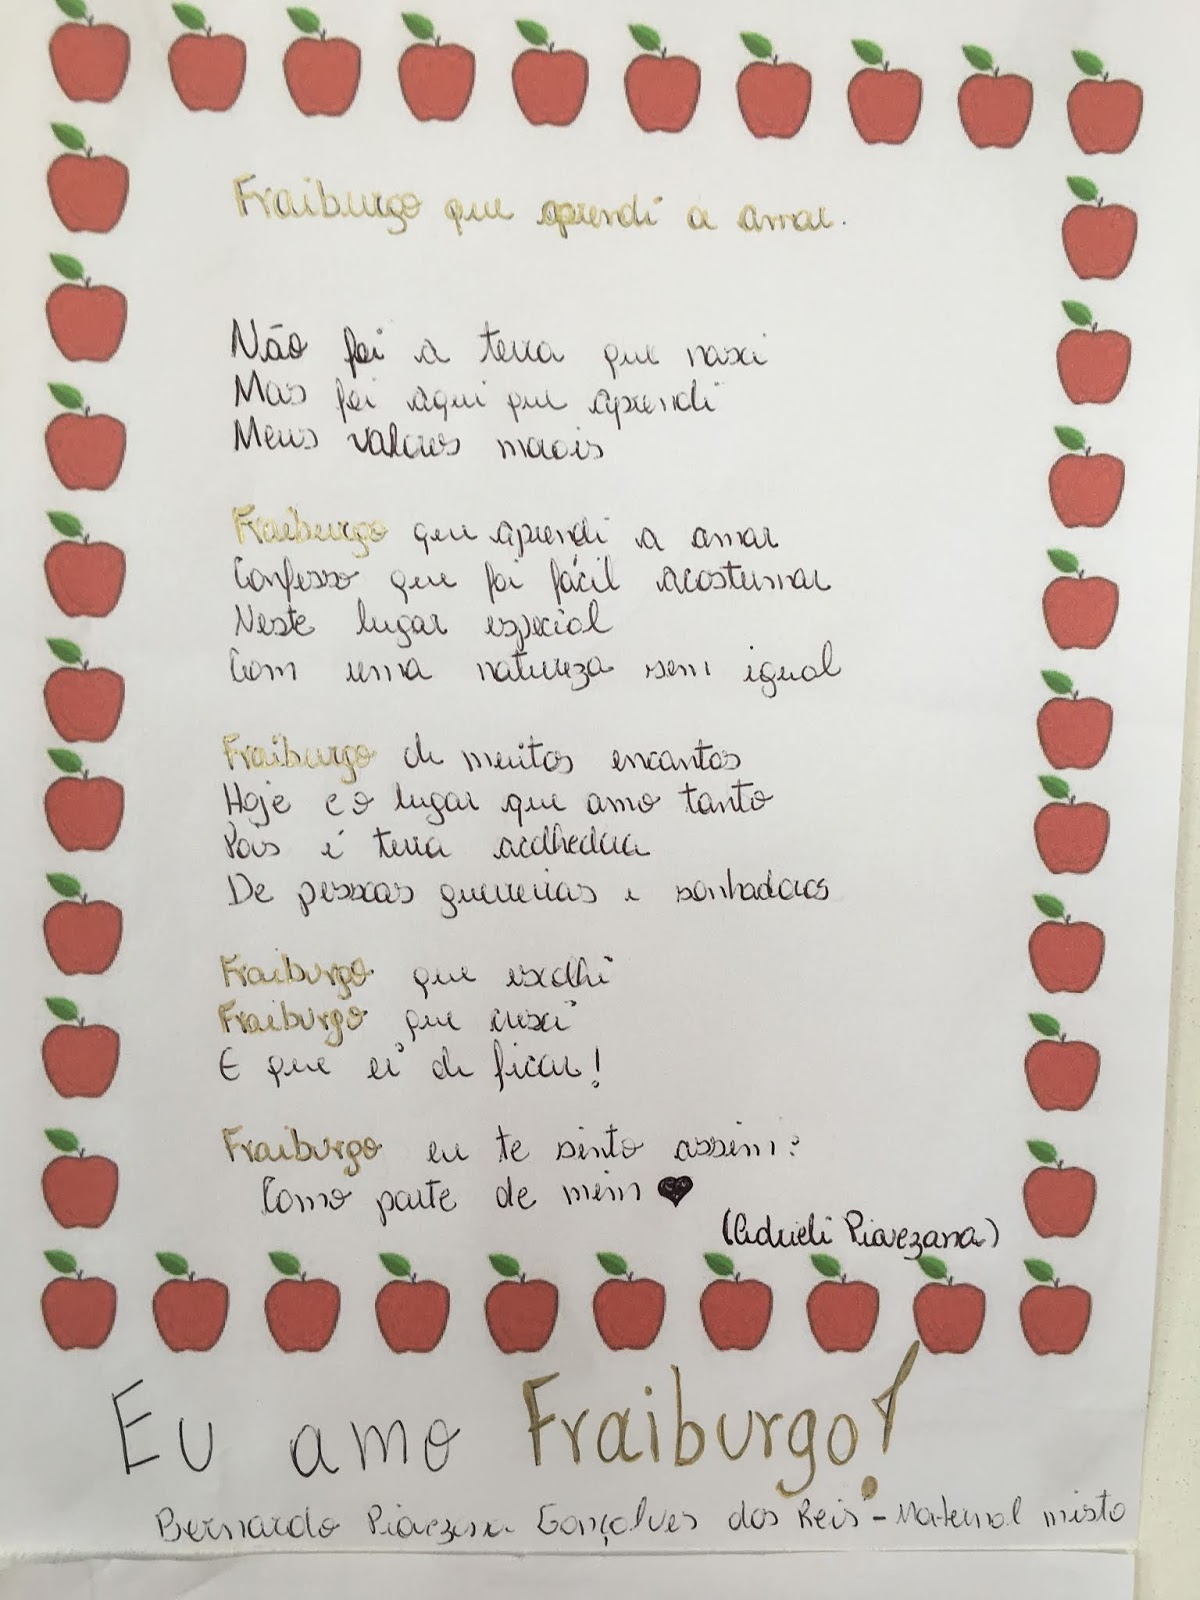 Fraiburgo que aprendi a amar.
Não foi a terra que nasci
Mas foi aqui que aprendi
Meus valores morais
Fraiburgo que aprendi a amar
Confesso que foi fácil acostumar
Neste lugar especial
Com uma natureza sem igual
Fraiburgo de muitos encantos
Hoje e o lugar que amo tanto
Pois é terra acolhedora
De pessoas guerreiras e sonhadoras
Fraiburgo que escolhi
Fraiburgo que cresci
E que ei de ficar!
Fraiburgo eu te sinto assim:
Como parte de mim ♥
(Adrieli Piavezana)
Eu amo Fraiburgo!
Bernardo Piavezana Gonçalves dos Reis - Maternal misto